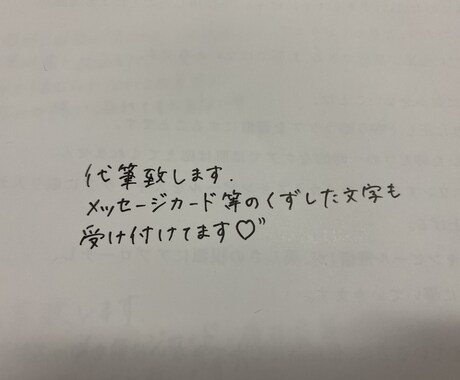 代筆致します.
メッセージカード等のくずした文字も
受け付けてます♡"